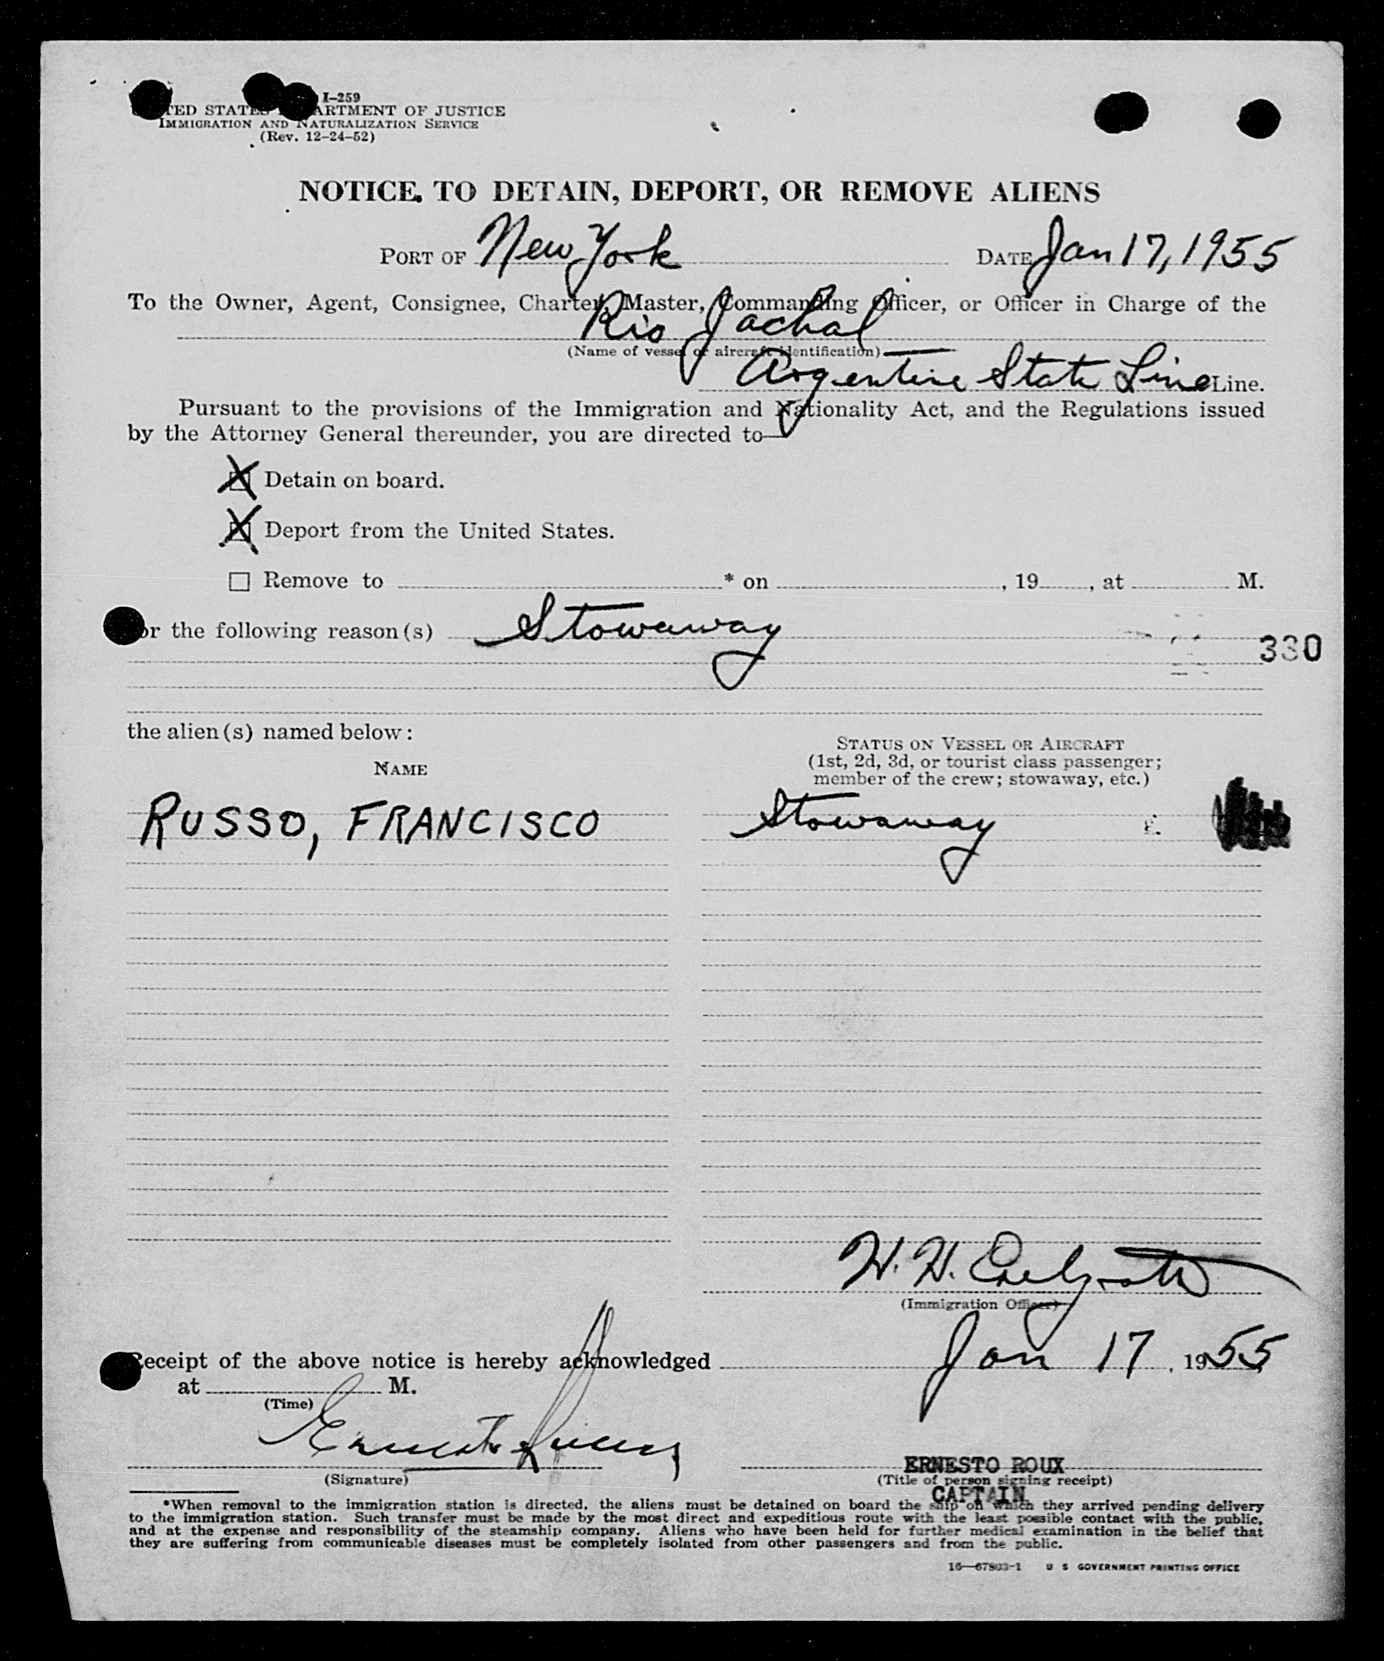 I-259
UNITED STATES DEPARTMENT OF JUSTICE
IMMIGRATION AND NATURALIZATION SERVICE
(Rev. 12-24-52)
NOTICE TO DETAIN, DEPORT, OR REMOVE ALIENS
PORT OF New York DATE Jan 17, 1955
To the Owner, Agent, Consignee, Charter, Master, Commanding Officer, or Officer in Charge of the
Rio Jachal
(Name of vessel or aircraft identification)
Argentine State Line Line.
Pursuant to the provisions of the Immigration and Nationality Act, and the Regulations issued
by the Attorney General thereunder, you are directed to—
X Detain on board.
X Deport from the United States.
☐ Remove to * on , 19 , at M.
For the following reason(s) Stowaway
330
the alien(s) named below:
NAME
STATUS ON VESSEL OR AIRCRAFT
(1st, 2d, 3d, or tourist class passenger;
member of the crew; stowaway, etc.)
RUSSO, FRANCISCO Stowaway
W. H.
(Immigration Officer)
Receipt of the above notice is hereby acknowledged Jan 17, 1955
at M.
(Time)
Ernesto
(Signature)
ERNESTO ROUX
(Title of person signing receipt)
CAPTAIN
*When removal to the immigration station is directed, the aliens must be detained on board the ship on which they arrived pending delivery
to the immigration station. Such transfer must be made by the most direct and expeditious route with the least possible contact with the public,
and at the expense and responsibility of the steamship company. Aliens who have been held for further medical examination in the belief that
they are suffering from communicable diseases must be completely isolated from other passengers and from the public.
16—67803-1 U S GOVERNMENT PRINTING OFFICE